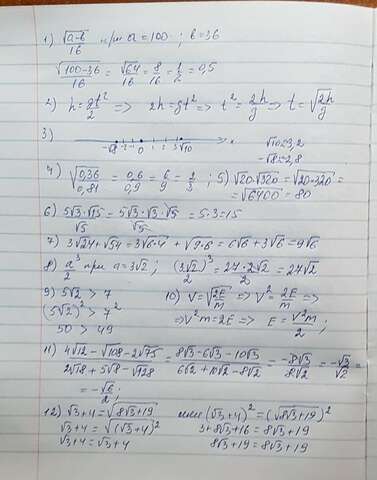 1) √(a-b)/16 при a=100 ; b=36
√(100-36)/16 = √64/16 = 8/16 = 1/2 = 0,5
2) h = gt²/2 => 2h = gt² => t² = 2h/g => t = √(2h/g)
3) -√8 -2 -1 0 1 2 3 √10 √10=3,2
-√8=2,8
4) √(0,36/0,81) = 0,6/0,9 = 6/9 = 2/3 ; 5) √20·√320 = √20·320 =
= √6400 = 80
6) 5√3·√15/√5 = 5√3·√3·√5/√5 = 5·3 = 15
7) 3√24 + √54 = 3√6·4 + √9·6 = 6√6 + 3√6 = 9√6
8) a³/2 при a = 3√2 ; (3√2)³/2 = 27·2√2/2 = 27√2
9) 5√2 > 7 10) V = √(2E/m) => V² = 2E/m =>
(5√2)² > 7² => V²m = 2E => E = V²m/2 ;
50 > 49
11) (4√12 - √108 - 2√75)/(2√18 + 5√8 - √128) = (8√3 - 6√3 - 10√3)/(6√2 + 10√2 - 8√2) = -8√3/8√2 = -√3/√2 =
= -√6/2 ;
12) √3+4 = √(8√3+19) или (√3+4)² = (√(8√3+19))²
√3+4 = √((√3+4)²) 3+8√3+16 = 8√3+19
√3+4 = √3+4 8√3+19 = 8√3+19